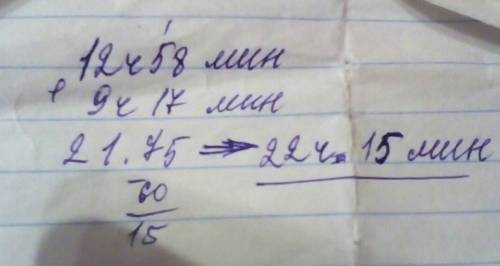 12ч 58 мин
+ 9ч 17 мин
21.75 → 22ч. 15 мин
60
15